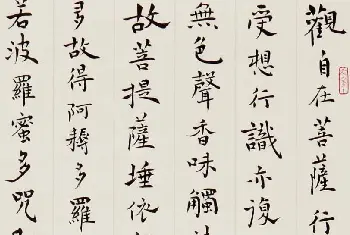 觀自在菩薩行
受想行識亦復
無色聲香味觸
故菩提薩埵依
多故得阿耨多羅
若波羅蜜多咒